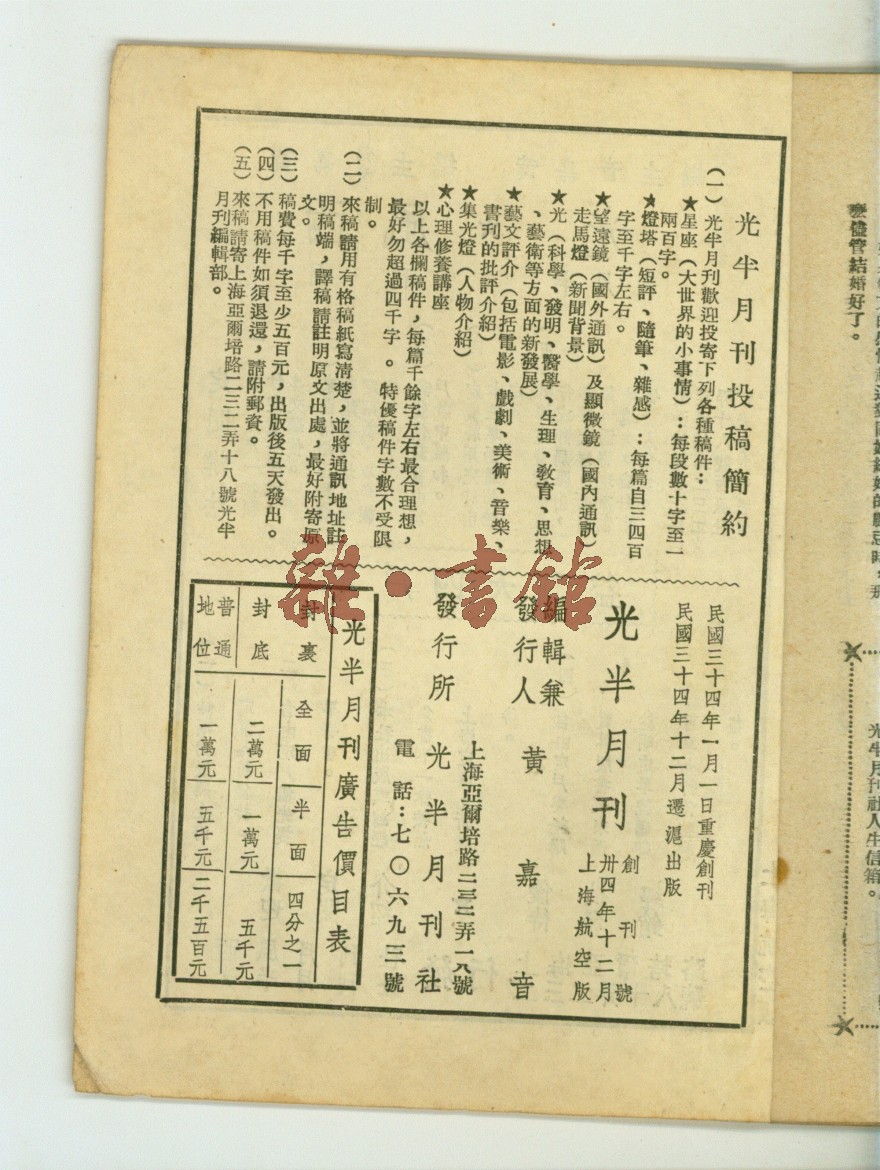 光半月刊投稿簡約
（一）光半月刊歡迎投寄下列各種稿件：
★星座（大世界的小事情）：每段數十字至一
兩百字。
★燈塔（短評、隨筆、雜感）：每篇自三四百
字至千字左右。
★望遠鏡（國外通訊）及顯微鏡（國內通訊）
走馬燈（新聞背景）
★光（科學、發明、醫學、生理、教育、思想
、藝術等方面的新發展）
★藝文評介（包括電影、戲劇、美術、音樂、
書刊的批評介紹）
★集光燈（人物介紹）
★心理修養講座
以上各欄稿件，每篇千餘字左右最合理想，
最好勿超過四千字。特優稿件字數不受限
制。
（二）來稿請用有格稿紙寫清楚，並將通訊地址註
明稿端，譯稿請註明原文出處，最好附寄原
文。
（三）稿費每千字至少五百元，出版後五天發出。
（四）不用稿件如須退還，請附郵資。
（五）來稿請寄上海亞爾培路二三二弄十八號光半
月刊編輯部。
民國三十四年一月一日重慶創刊
民國三十四年十二月遷滬出版
光半月刊
創刊號
卅四年十二月
上海航空版
編輯兼
發行人 黃嘉音
發行所 光半月刊社
上海亞爾培路二三二弄一八號
電話：七〇六九三號
光半月刊廣告價目表
全面 半面 四分之一
封裏
封底 二萬元 一萬元 五千元
普通地位 一萬元 五千元 二千五百元
雜·書館
麼儘管結婚好了。
光半月刊社人生信箱。